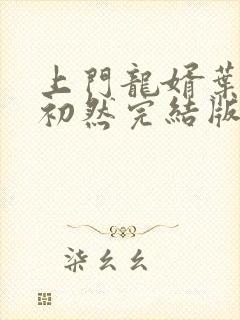 上門龍婿葉
初然完結版
柒幺幺